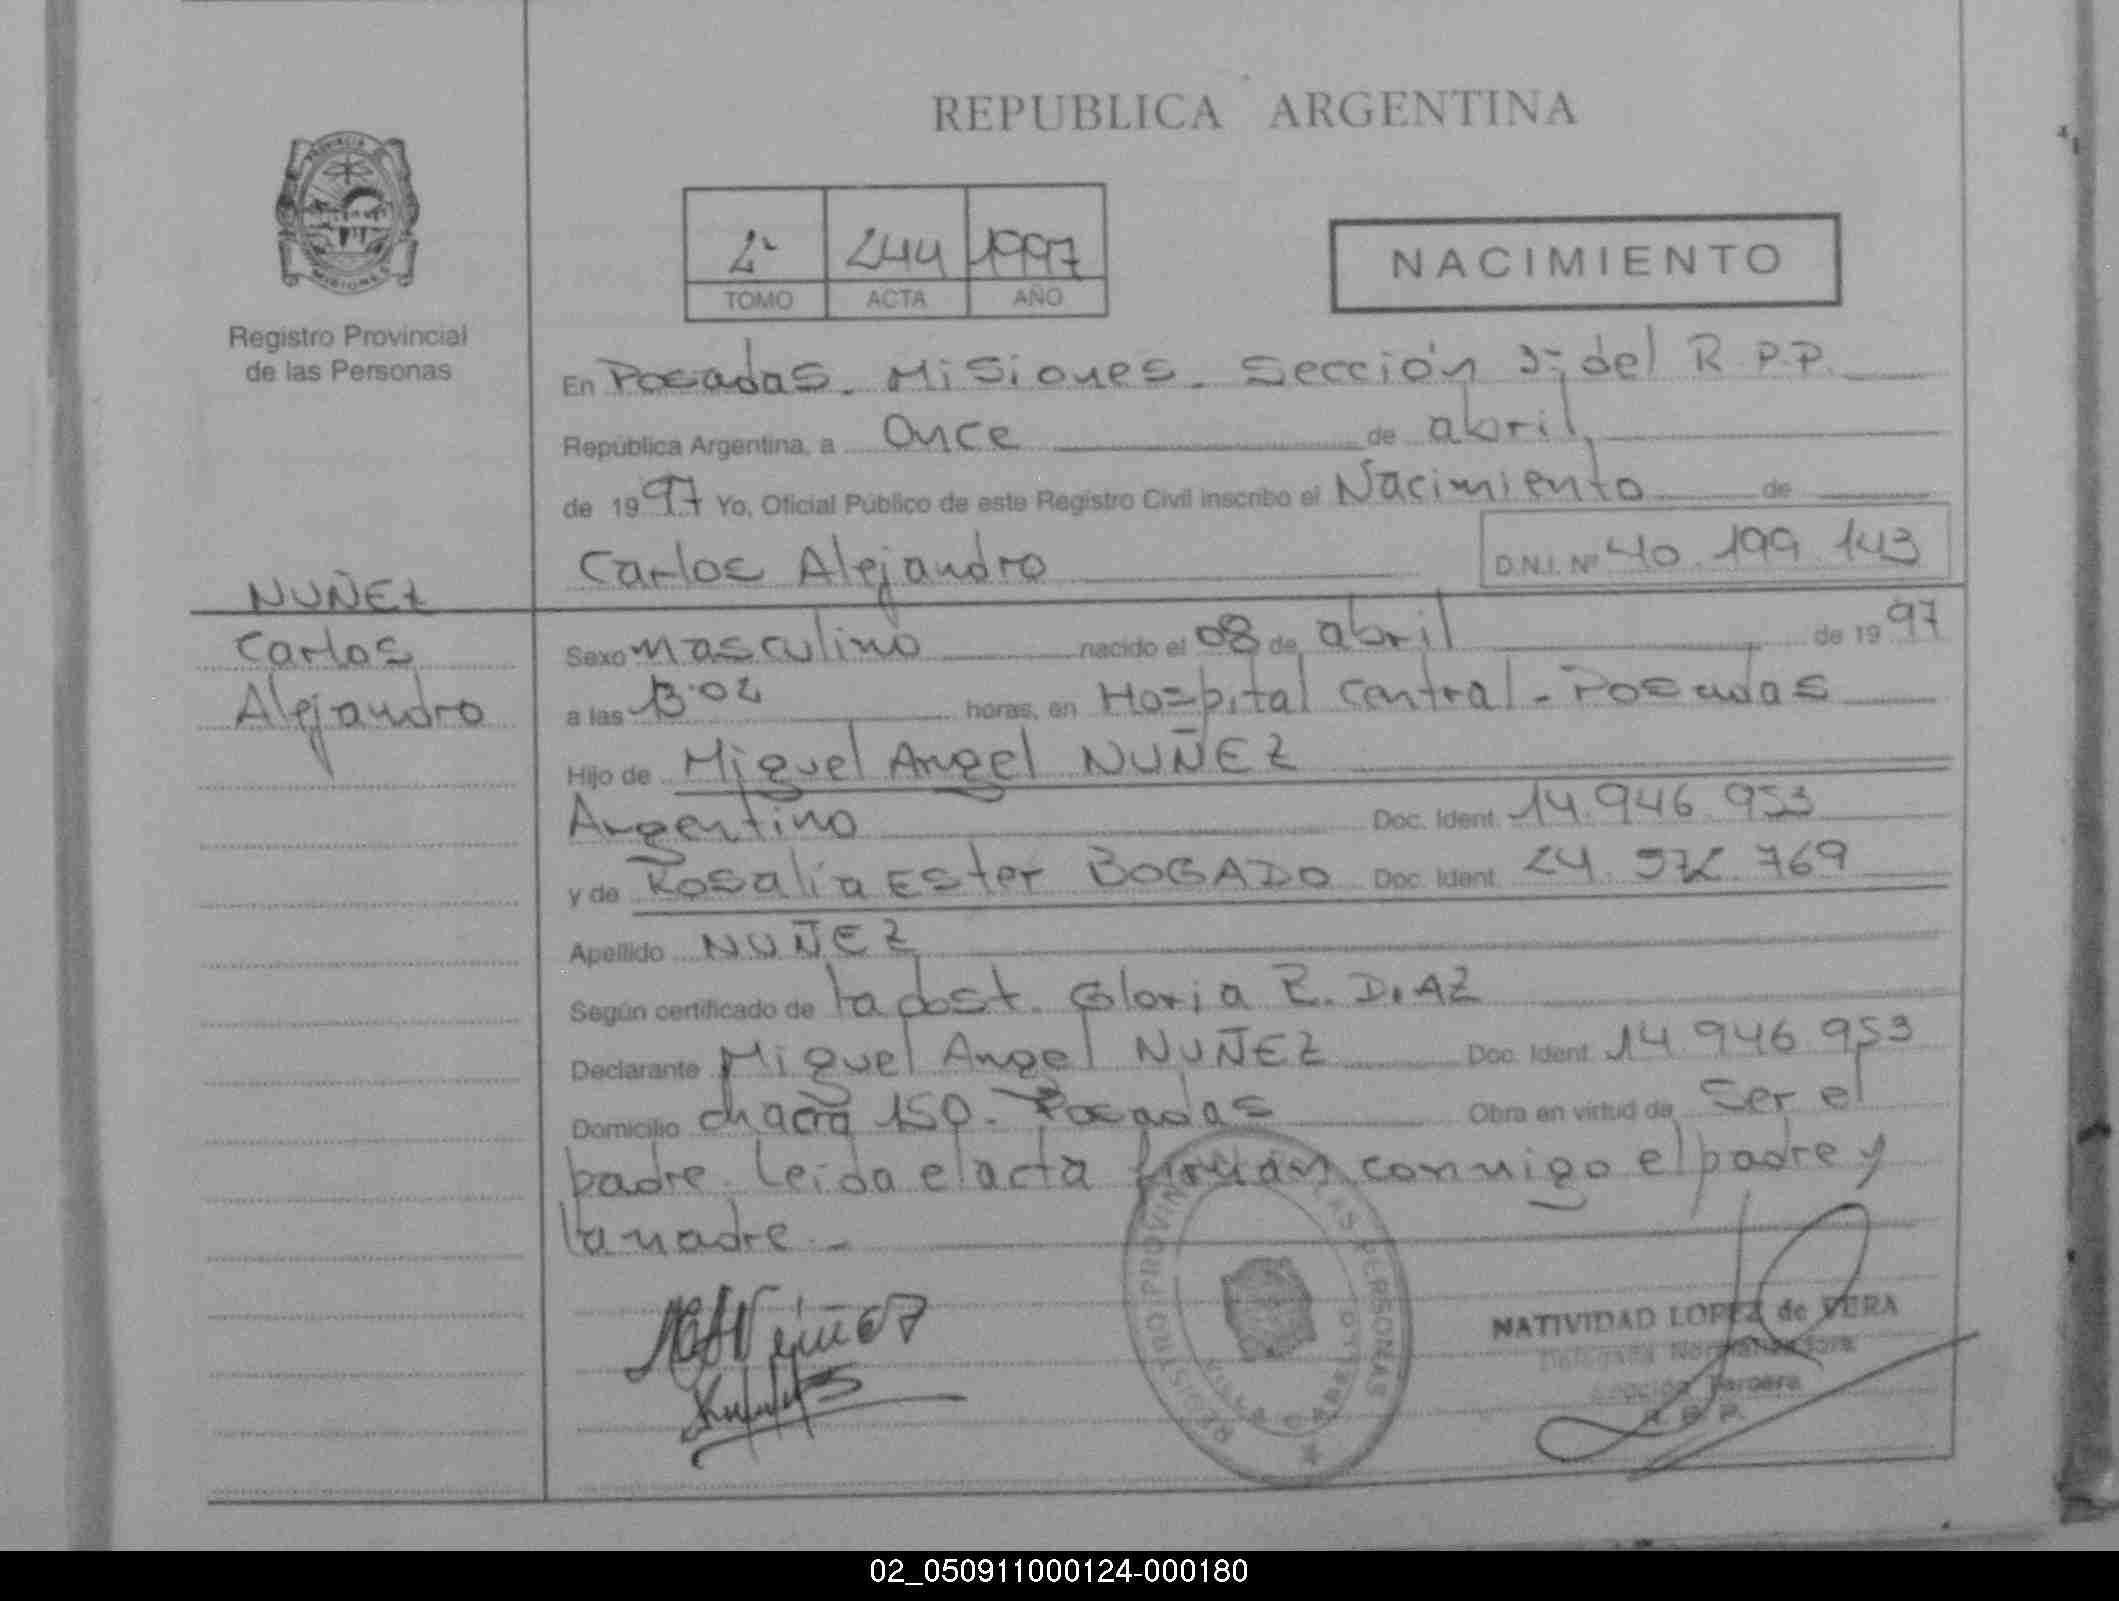 REPUBLICA ARGENTINA
PROVINCIA DE MISIONES
Registro Provincial
de las Personas
2º 244 1997
TOMO ACTA AÑO
NACIMIENTO
En Posadas. Misiones. Sección 3ª del R.P.P.
República Argentina, a Once de abril,
de 1997 Yo, Oficial Público de este Registro Civil inscribo el Nacimiento de
Carlos Alejandro D.N.I. Nº 40.199.143
NUÑEZ
Carlos
Alejandro
Sexo masculino nacido el 08 de abril de 1997
a las 13.02 horas, en Hospital Central - Posadas
Hijo de Miguel Angel NUÑEZ
Argentino Doc. Ident. 14.946.953
y de Rosalia Ester BOGADO Doc. Ident. 24.572.769
Apellido NUÑEZ
Según certificado de la obst. Gloria E. DIAZ
Declarante Miguel Angel NUÑEZ Doc. Ident. 14.946.953
Domicilio chacra 150. Posadas Obra en virtud de Ser el
padre. Leida el acta firman conmigo el padre y
la madre. -
REGISTRO PROVINCIAL DE LAS PERSONAS
NATIVIDAD LOPEZ de VERA
Delegada Normalizadora
Sección Tercera
R. P. P.
02_050911000124-000180